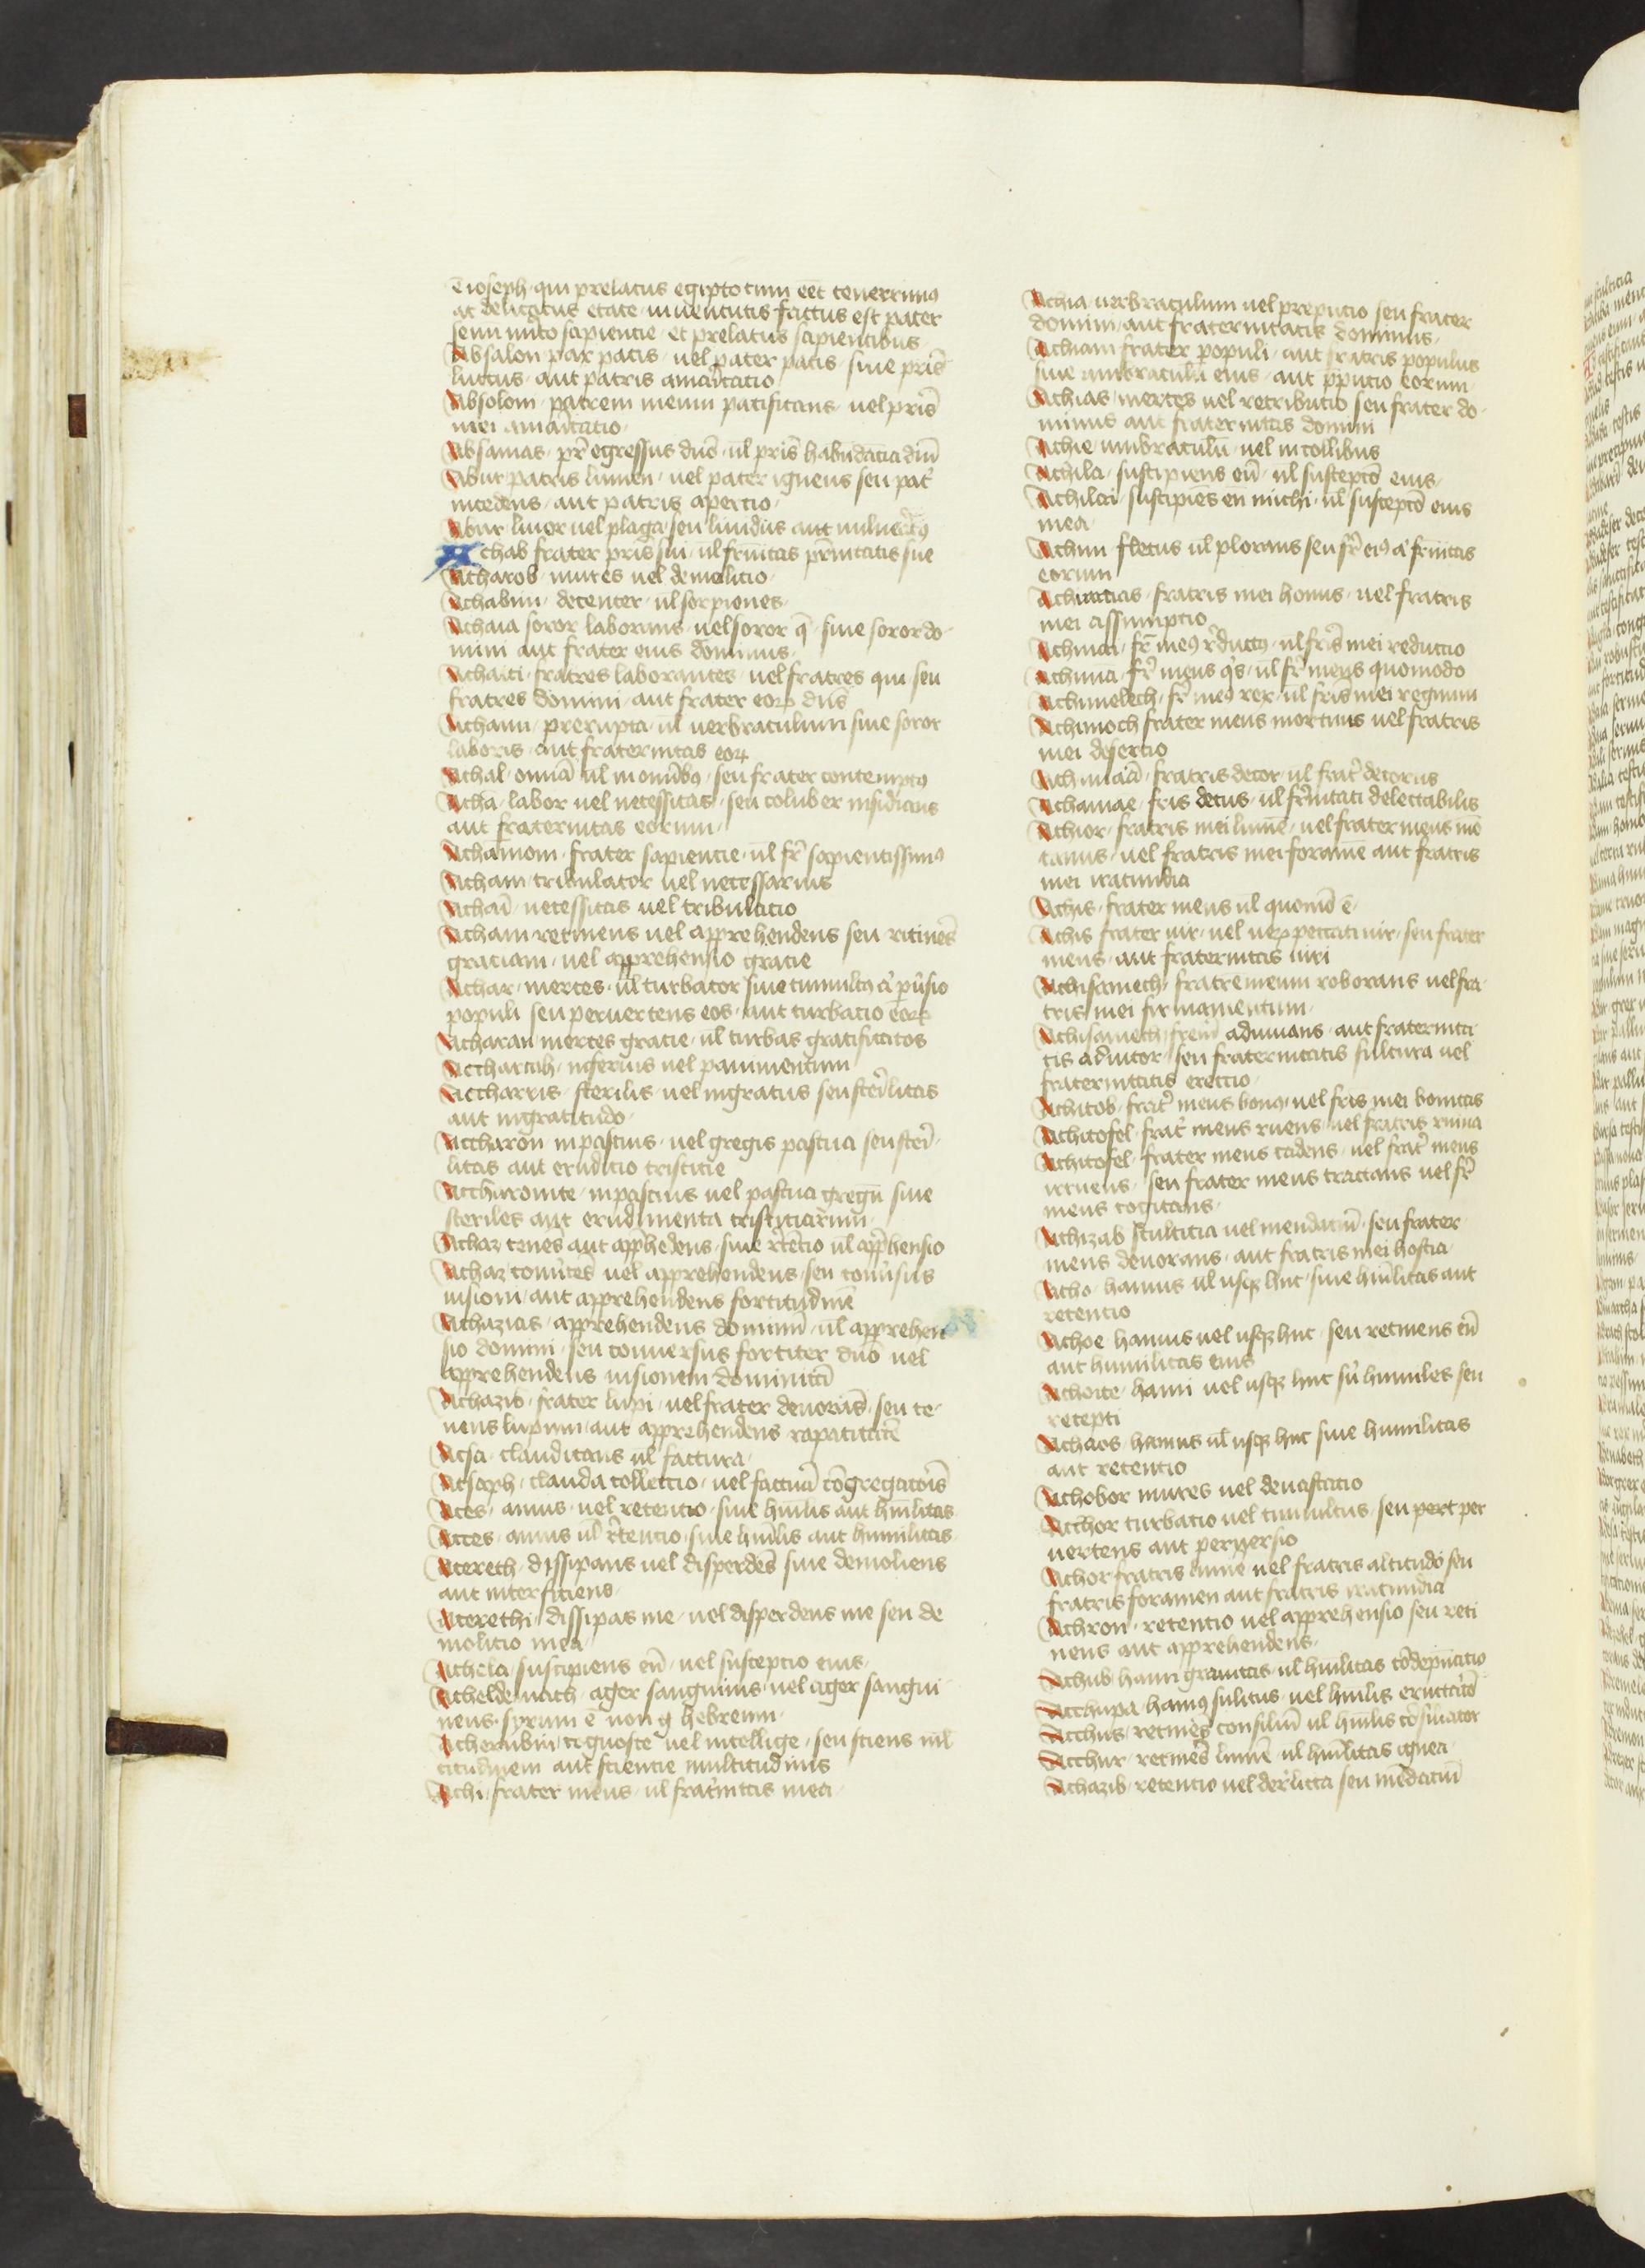 ē ioseph · qui prelatus egipto cum eēt tenerrimꝰ
ac delicatus etate · iuuentutis factus est pater
senū mīto sapiencie · et prelatus sapientibus ·
Absalon pax pacis · uel pater pacis · siue pr̄is
luctus · aut patris amaricatio
Absolom · patrem meum pacificans · uel pr̄is
mei amaricatio ·
Absamas · pr̄ egressus dn̄o · ul pr̄is habūdācia dīu
Abur patris lumen · uel pater igneus seu pat̄
incedens · aut patris apertio ·
Abur liuor uel plaga · seu liuidus aut
Achab frater pris sui · ul fr̄nitas pr̄nitatis sue
Acharob · mures uel demolitio ·
Achabim · decenter · ul scorpiones ·
Achaia soror laborans · uel soror q̄ · siue soror do-
mini aut frater eius dominus ·
Achaici · fratres laborantes · uel fratres qui seu
fratres domini · aut frater eoꝝ dn̄s
Acham · prerupta · ul uerbraculum siue soror
laboris · aut fraternitas eoꝝ
Achal · omīa ul in omībꝰ · seu frater contemptꝰ
Achā · labor uel necessitas · seu coluber insidians
aut fraternitas eorum ·
Achamom · frater sapiencie · ul fr̄ sapientissimꝰ
Acham · tribulator uel necessarius
Achaī · necessitas uel tribulatio
Acham retinens uel apprehendens seu ritinēs
graciam · uel apprehensio gracie
Achar · merces · ul turbator siue tumultꝰ
populi seu peruertens eos · aut turbatio eoꝝ
Acharan merces gracie · ul turbas gratificatos
Accharath · inferius uel pauimentum
Accharris · sterilis · uel ingratus seu sterilitas
aut ingratitudo ·
Accharon in pascuis · uel gregis pascua seu steri-
litas aut eruditio tristicie
Accharonite · in pascuis uel pascua gregū siue
steriles aut erudimenta tristiciarum ·
Achaz tenēs aut appr̄hēdens · siue r̄tētio ul appr̄hensio
Achaz uel apprehendens · seu conūsus
uisiom · aut apprehendens fortitudinē
Achazias · apprehendens dominū · ul apprehen
sio domini · seu conuersus fortiter dn̄o uel
apprehendens uisionem dominicā
Achazib · frater lupi · uel frater deuorās · seu te-
nens lupum · aut apprehendens rapacitatē
Acsa · claudicans ul factura ·
Acsaph · clauda collectio · uel factura cōgregatōis
Aces · anus · uel retentio · siue hūilis aut hūilitas
Acces · anus ul r̄tentio · siue hūilis aut humilitas
Acereth · dissipans uel disperdēs siue demoliens
aut interficiens ·
Acerethi · dissipas me · uel disperdens me seu de
molitio mea
Achela suscipiens eū · uel susceptio eius ·
Acheldemach · ager sanguinis · uel ager sangui
neus · syrum ē non g hebreum ·
Acherubin · cognosce uel intellige · seu sciens mul
titudinem aut sciencie multitudinis
Achi · frater meus · ul frat̄nitas mea ·
Achia · uerbraculum uel preputio seu frater
domini / aut fraternitatis dominus ·
Achiam frater populi · aut fratris populus
siue umbraculū eius · aut p̄putio eorum ·
Achias merces uel retributio seu frater do-
minus aut fraternitas domini
Achie · umbraculū · uel in collibus
Achila · suscipiens eū · ul susceptō eius ·
Achilai · suscipies en michi · ul susceptō eius
mea ·
Achim fletus ul plorans seu fr̄ eiꝰ a fr̄nitas
eorum
Achiatias · fratris mei homus · uel fratris
mei assumptio
Achiuai · fr̄ meꝰ r̄ductꝰ · ul fris mei reductio
Achimā · fr̄ meus q̄s · ul fr̄ meus quomodo
Achimelech · fr̄ meꝰ rex · ul fris mei regnum
Achimoch frater meus mortuus uel fratris
mei desertio
Achinaā · fratris decor · ul frat̄ decorus
Achamae · fris decus · ul fr̄nitati delectabilis
Achior · fratris mei lumē · uel frater meus mō
tanus · uel fratris mei foramē aut fratris
mei iracundia
Achis · frater meus ul quomō ē ·
Achis frater uir · uel uero peccati uir · seu frater
meus · aut fraternitas uiri
Achisamech · fratrē meum roborans uel fra-
tris mei firmamentum ·
Achisamech frem̄ adunans · aut fraternita
tis adiutor · seu fraternitatis fultura uel
fraternitatis erectio ·
Achitob · frat̄ meus bonꝰ · uel fris mei bonitas
Achitofel · frat̄ meus ruens · uel fratris ruina
Achitofel · frater meus cadens · uel frat̄ meus
irruens · seu frater meus tractans uel fr̄
meus cogitans ·
Achizab stultitia uel mendaciū · seu frater
meus deuorans · aut fratris mei hostia ·
Acho · hamus ul usqꝫ huc · siue hūilitas aut
retentio
Achoe hamus uel usqꝫ huc · seu retinens eū
aut humilitas eius
Achoite · hami uel usqꝫ huc sūt humiles seu
recepti
Achaos · hamus ul usqꝫ huc siue humilitas
aut retentio
Achobor mures uel deuastatio
Acchor turbatio uel tumultus · seu pert per
uertens aut peruersio
Achor fratris lumē uel fratris altitudo seu
fratris foramen aut fratris iracundia
Achron · retentio uel apprehensio seu reti
nens aut apprehendens ·
Achub hami grauitas · ul hūilitas
Acchupa · hamꝰ sulitus · uel hūilis eructatō
Acchus · retinēs consiliū ul hūilis cōsiliator
Acchur · retinēs lumē · ul hūilitas ignea ·
Achazib · retentio uel derelicta seu mēdaciū